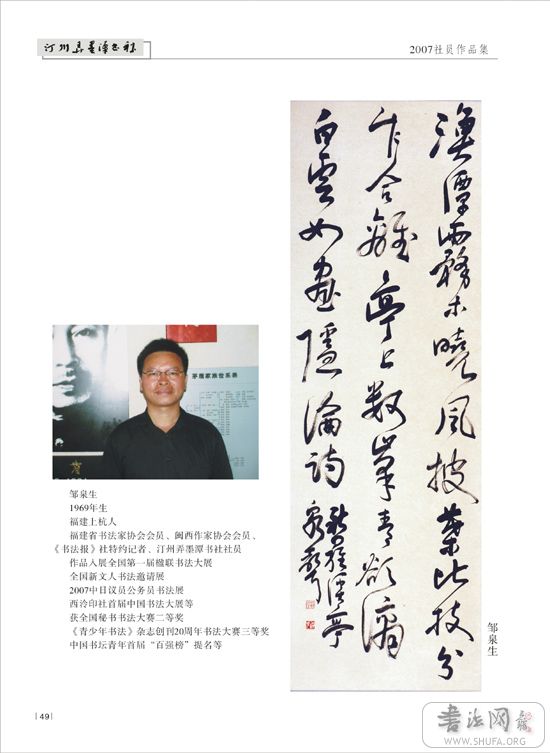 2007社员作品集
漁潭 曉風披葉比枝分
合離亭上數峯青欲滴
白雲如畫隱淪詩
茅盾家族世系表
邹泉生
1969年生
福建上杭人
福建省书法家协会会员、闽西作家协会会员、
《书法报》社特约记者、汀州弄墨潭书社社员
作品入展全国第一届楹联书法大展
全国新文人书法邀请展
2007中日议员公务员书法展
西泠印社首届中国书法大展等
获全国秘书书法大赛二等奖
《青少年书法》杂志创刊20周年书法大赛三等奖
中国书坛青年首届“百强榜”提名等
邹泉生
49
書法网
WWW.SHUFA.ORG